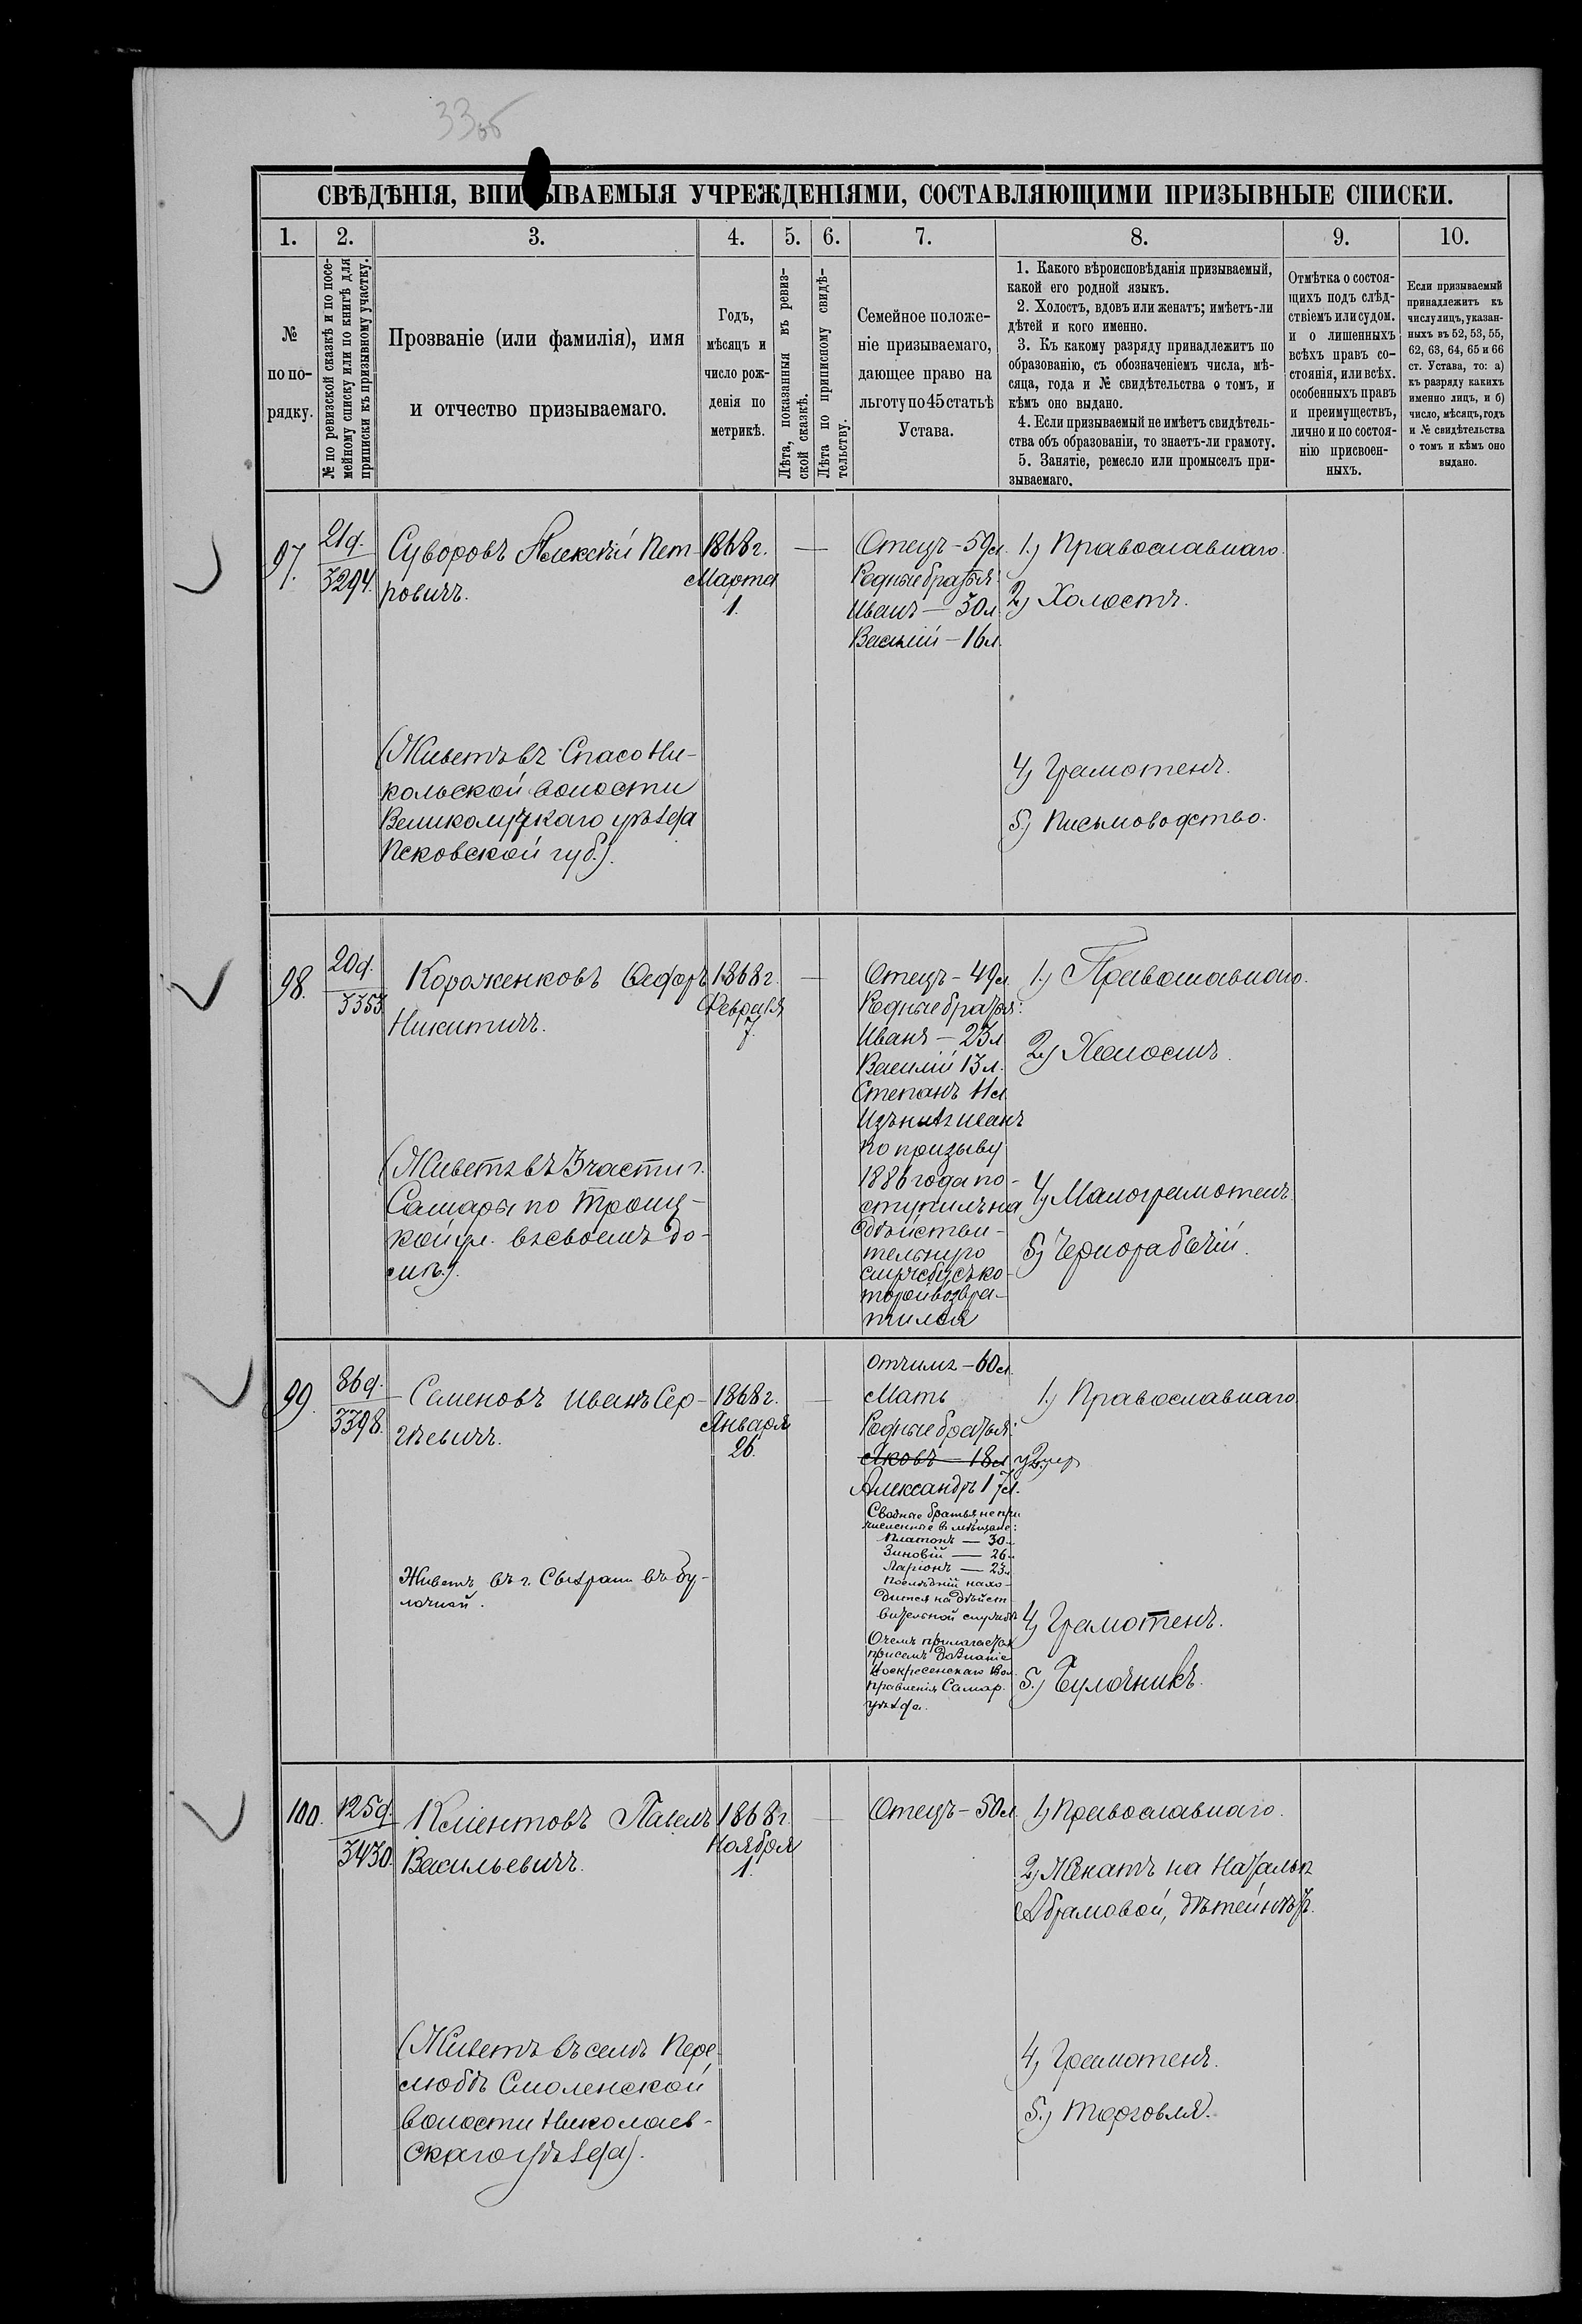 33об
СВѢДѢНІЯ, ВПИСЫВАЕМЫЯ УЧРЕЖДЕНІЯМИ, СОСТАВЛЯЮЩИМИ ПРИЗЫВНЫЕ СПИСКИ.
1. 2. 3. 4. 5. 6. 7. 8. 9. 10.
№
по по-
рядку.
№ по ревизской сказкѣ и по посе-
мейному списку или по книгѣ для
приписки къ призывному участку.
Прозваніе (или фамилія), имя
и отчество призываемаго.
Годъ,
мѣсяцъ и
число рож-
денія по
метрикѣ.
Лѣта, показанныя въ ревиз-
ской сказкѣ.
Лѣта по приписному свидѣ-
тельству.
Семейное положе-
ніе призываемаго,
дающее право на
льготу по 45 статьѣ
Устава.
1. Какого вѣроисповѣданія призываемый,
какой его родной языкъ.
2. Холостъ, вдовъ или женатъ; имѣетъ-ли
дѣтей и кого именно.
3. Къ какому разряду принадлежитъ по
образованію, съ обозначеніемъ числа, мѣ-
сяца, года и № свидѣтельства о томъ, и
кѣмъ оно выдано.
4. Если призываемый не имѣетъ свидѣтель-
ства объ образованіи, то знаетъ-ли грамоту.
5. Занятіе, ремесло или промыселъ при-
зываемаго.
Отмѣтка о состоя-
щихъ подъ слѣд-
ствіемъ или судом.
и о лишенныхъ
всѣхъ правъ со-
стоянія, или всѣх.
особенныхъ правъ
и преимуществъ,
лично и по состоя-
нію присвоен-
ныхъ.
Если призываемый
принадлежитъ къ
числу лицъ, указан-
ныхъ въ 52, 53, 55,
62, 63, 64, 65 и 66
ст. Устава, то: а)
къ разряду какихъ
именно лицъ, и б)
число, мѣсяцъ, годъ
и № свидѣтельства
о томъ и кѣмъ оно
выдано.
97.
21д.
3294.
Суворовъ Алексѣй Пет-
ровичъ.
(Живетъ въ Спасо Ни-
кольской волости
Великолуцкаго уѣзда
Псковской губ.).
1868 г.
Марта
1.
Отецъ - 59 л.
Родные братья:
Иванъ - 30 л.
Василій - 16 л.
1.) Православнаго.
2.) Холостъ.
4.) Грамотенъ.
5.) Письмоводство.
98.
20д.
3353
Короженковъ Федоръ
Никитичъ.
(Живетъ въ 3 части г.
Самары по Троиц-
кой ул. въ своемъ до-
мѣ.).
1868 г.
Февраля
7.
Отецъ - 49 л.
Родные братья:
Иванъ - 23 л
Василій 13 л.
Степанъ 11 л
Изъ нихъ Иванъ
по призыву
1886 года по-
ступилъ на
дѣйстви-
тельную
службу, съ ко-
торой возвра-
тился
1.) Православнаго.
2.) Холостъ.
4.) Малограмотенъ.
5.) Чернорабочій.
99.
86д.
3398.
Семеновъ Иванъ Сер-
гѣевичъ.
Живетъ въ г. Сызрани въ бу-
лочной.
1868 г.
Января
26.
Отчимъ - 60 л.
Мать
Родные братья:
Яковъ - 18 л умер
Александръ 17 л.
Сводные братья, не при
численные въ мѣщане:
Платонъ — 30 л.
Зиновій — 26 л.
Ларіонъ — 23 л
Послѣдній нахо-
дится на дѣйст
вительной службѣ
О чемъ прилагается
при семъ дознаніе
Воскресенскаго Вол.
Правленія Самар.
уѣзда.
1.) Православнаго
2.)
4.) Грамотенъ.
5.) Булочникъ.
100.
125д.
3430.
Климентовъ Павелъ
Васильевичъ.
(Живетъ въ селѣ Пере-
любѣ Смоленской
волости Николаев-
скаго уѣзда).
1868 г.
Ноября
1.
Отецъ - 50 л
1.) Православнаго.
2.) Женатъ на Натальѣ
Абрамовой, дѣтей нѣтъ.
4.) Грамотенъ.
5.) Торговля.